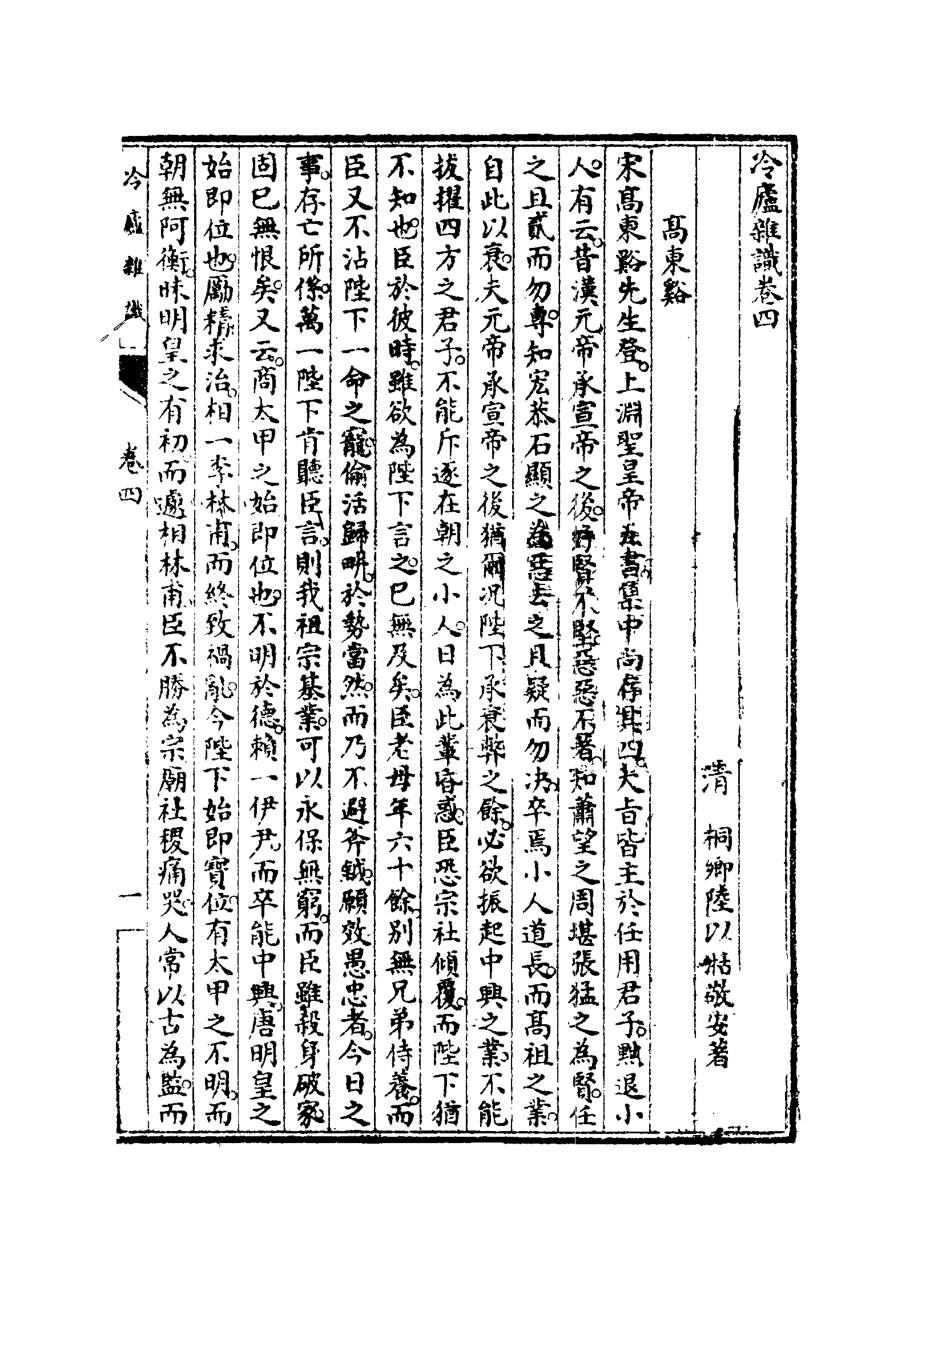 冷廬雜識卷四
清 桐鄉陸以湉敬安著
髙東谿
宋髙東谿先生登。上淵聖皇帝五書。集中尚存其四。大旨皆主於任用君子。黜退小
人。有云。昔漢元帝承宣帝之後。好賢不堅。惡惡不著。知蕭望之周堪張猛之為賢。任
之且貳而勿專。知宏恭石顯之為惡。去之且疑而勿决。卒焉小人道長。而髙祖之業。
自此以衰。夫元帝承宣帝之後猶爾。况陛下承衰弊之餘。必欲振起中興之業。不能
拔擢四方之君子。不能斥逐在朝之小人。日為此輩昏惑。臣恐宗社傾覆。而陛下猶
不知也。臣於彼時。雖欲為陛下言之。已無及矣。臣老母年六十餘。别無兄弟侍養。而
臣又不沾陛下一命之寵。偷活歸畊。於勢當然。而乃不避斧鉞。願效愚忠者。今日之
事。存亡所係。萬一陛下肯聽臣言。則我祖宗基業。可以永保無窮。而臣雖殺身破家。
固已無恨矣。又云。商太甲之始即位也。不明於德。賴一伊尹。而卒能中興。唐明皇之
始即位也。勵精求治。相一李林甫。而終致禍亂。今陛下始即寶位。有太甲之不明。而
朝無阿衡。昧明皇之有初。而遽相林甫。臣不勝為宗廟社稷痛哭。人常以古為監。而
冷廬雜識
卷四
一